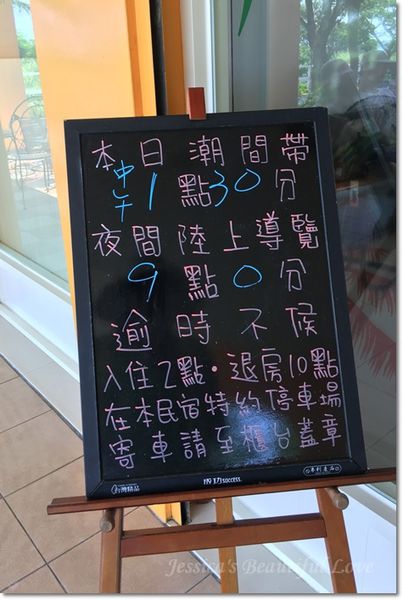 本日潮間帶
中午1點30分
夜間陸上導覽
9點0分
逾時不候
入住2點·退房10點
在本民宿特約停車場
寄車請至櫃台蓋章
success
Jessica's Beautiful Love